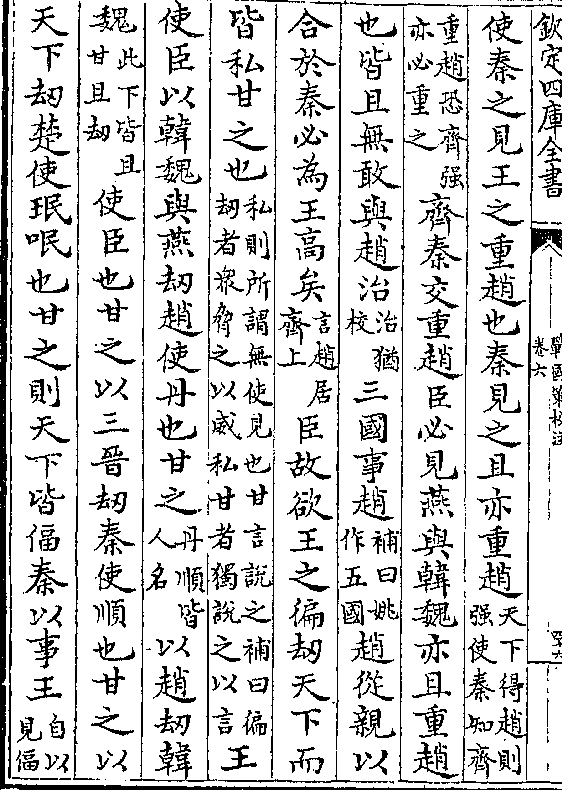 欽定四庫全書
戰國策校注
卷六
使秦之見王之重趙也秦見之且亦重趙天下得趙則强使秦知齊
重趙恐齊强亦必重之齊秦交重趙臣必見燕與韓魏亦且重趙
也皆且無敢與趙治治猶校三國事趙補曰姚作五國趙從親以
合於秦必為王高矣言趙居齊上臣故欲王之徧劫天下而
皆私甘之也私則所謂無使見也甘言說之補曰徧劫者衆脅之以威私甘者獨說之以言王
使臣以韓魏與燕劫趙使丹也甘之丹順皆人名以趙劫韓
魏此下皆且甘且劫使臣也甘之以三晉劫秦使順也甘之以
天下劫楚使珉呡也甘之則天下皆偪秦以事王自以見偪